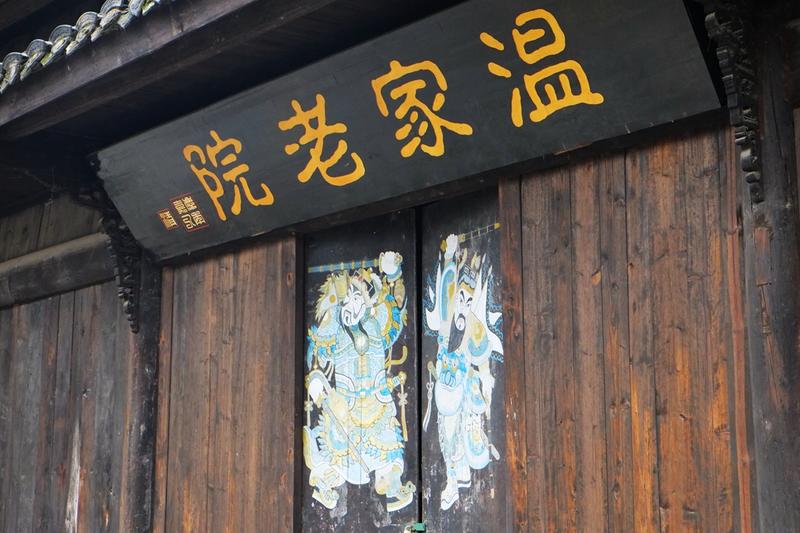 温家老院